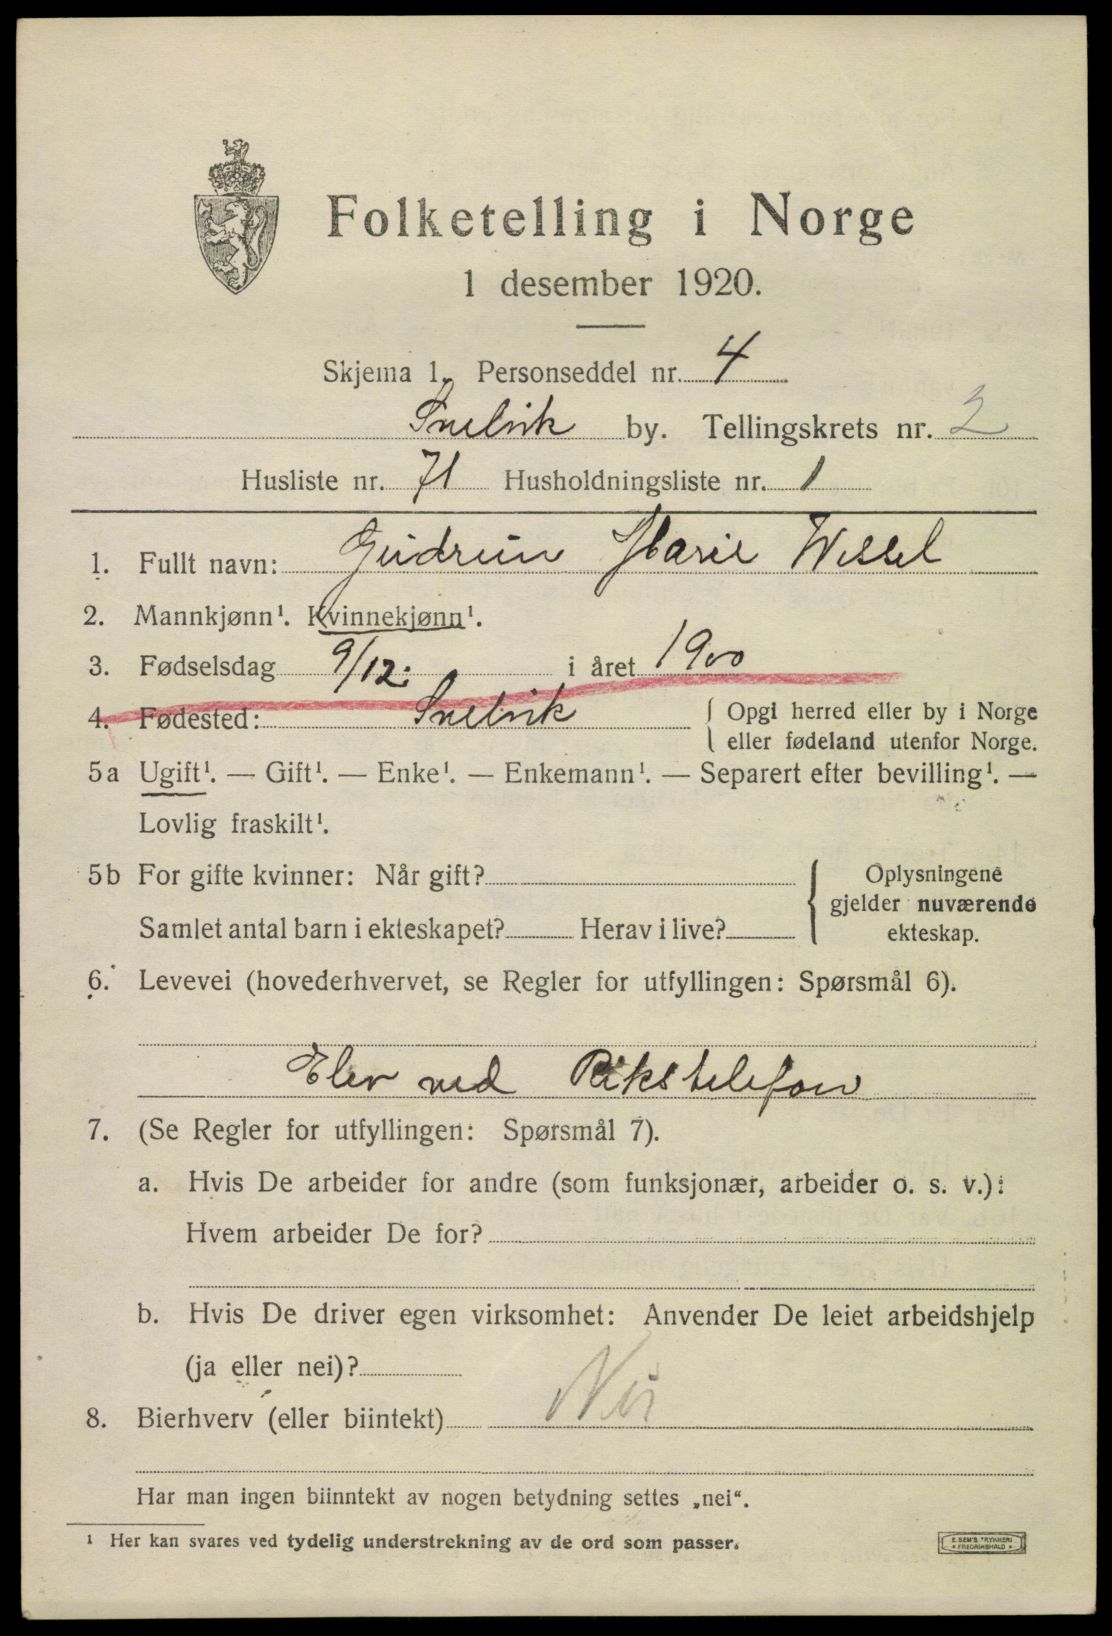 Folketelling i Norge
1 desember 1920.
Skjema 1. Personseddel nr. 4
Svelvik by. Tellingskrets nr. 2
Husliste nr. 71 Husholdningsliste nr. 1
1. Fullt navn: Gudrun Marie Wessel
2. Mannkjønn¹. Kvinnekjønn¹.
3. Fødselsdag 9/12. i året 1900
4. Fødested: Svelvik { Opgi herred eller by i Norge
eller fødeland utenfor Norge.
5a Ugift¹. — Gift¹. — Enke¹. — Enkemann¹. — Separert efter bevilling¹. —
Lovlig fraskilt¹.
5b For gifte kvinner: Når gift? { Oplysningene
gjelder nuværende
Samlet antal barn i ekteskapet? Herav i live? ekteskap.
6. Levevei (hovederhvervet, se Regler for utfyllingen: Spørsmål 6).
Elev ved Rikstelefon
7. (Se Regler for utfyllingen: Spørsmål 7).
a. Hvis De arbeider for andre (som funksjonær, arbeider o. s. v.):
Hvem arbeider De for?
b. Hvis De driver egen virksomhet: Anvender De leiet arbeidshjelp
(ja eller nei)?
8. Bierhverv (eller biintekt) Nei
Har man ingen biinntekt av nogen betydning settes „nei“.
¹ Her kan svares ved tydelig understrekning av de ord som passer.
E. SEM'S TRYKKERI
FREDRIKSHALD